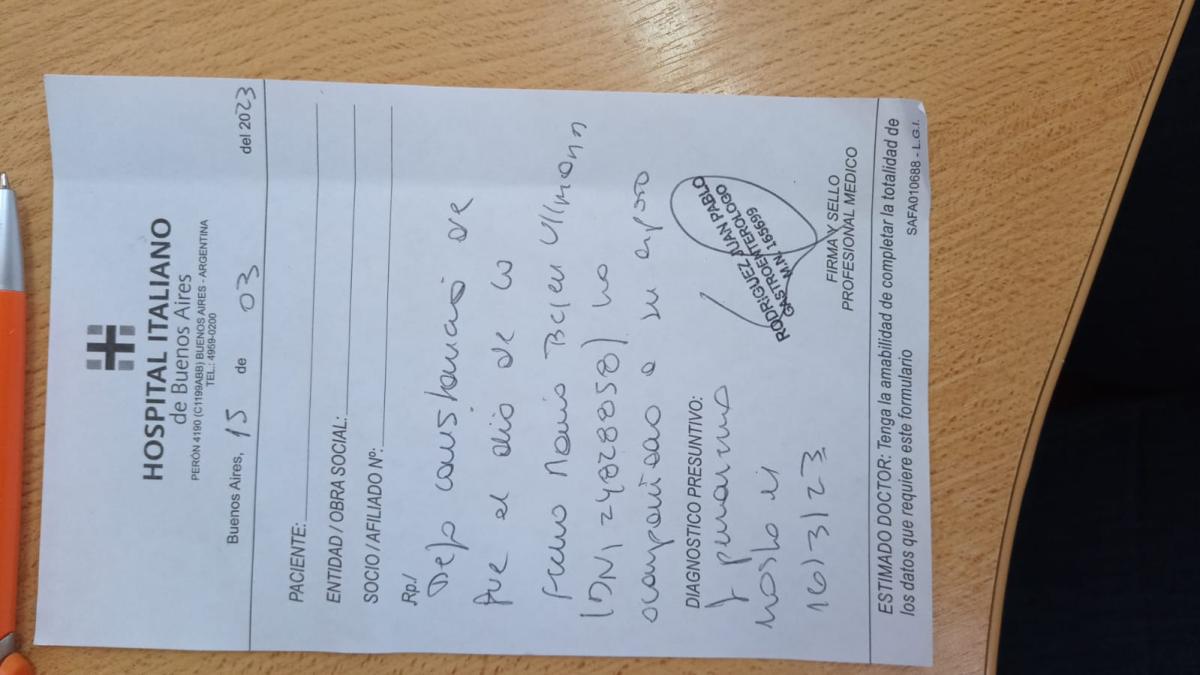 HOSPITAL ITALIANO
de Buenos Aires
PERÓN 4190 (C1199ABB) BUENOS AIRES - ARGENTINA
TEL.: 4959-0200
Buenos Aires, 15 de 03 del 2023
PACIENTE:
ENTIDAD / OBRA SOCIAL:
SOCIO / AFILIADO Nº:
Rp./
Dejo constancia de
que el día de la
fecha María Belen Ullmann
(DNI 24828850) ha
acompañado a su esposo
DIAGNOSTICO PRESUNTIVO:
y permanece
hasta el
16/3/23
RODRIGUEZ JUAN PABLO
GASTROENTEROLOGO
M.N. 165699
FIRMA Y SELLO
PROFESIONAL MEDICO
ESTIMADO DOCTOR: Tenga la amabilidad de completar la totalidad de
los datos que requiere este formulario
SAFA010688 - L.G.I.